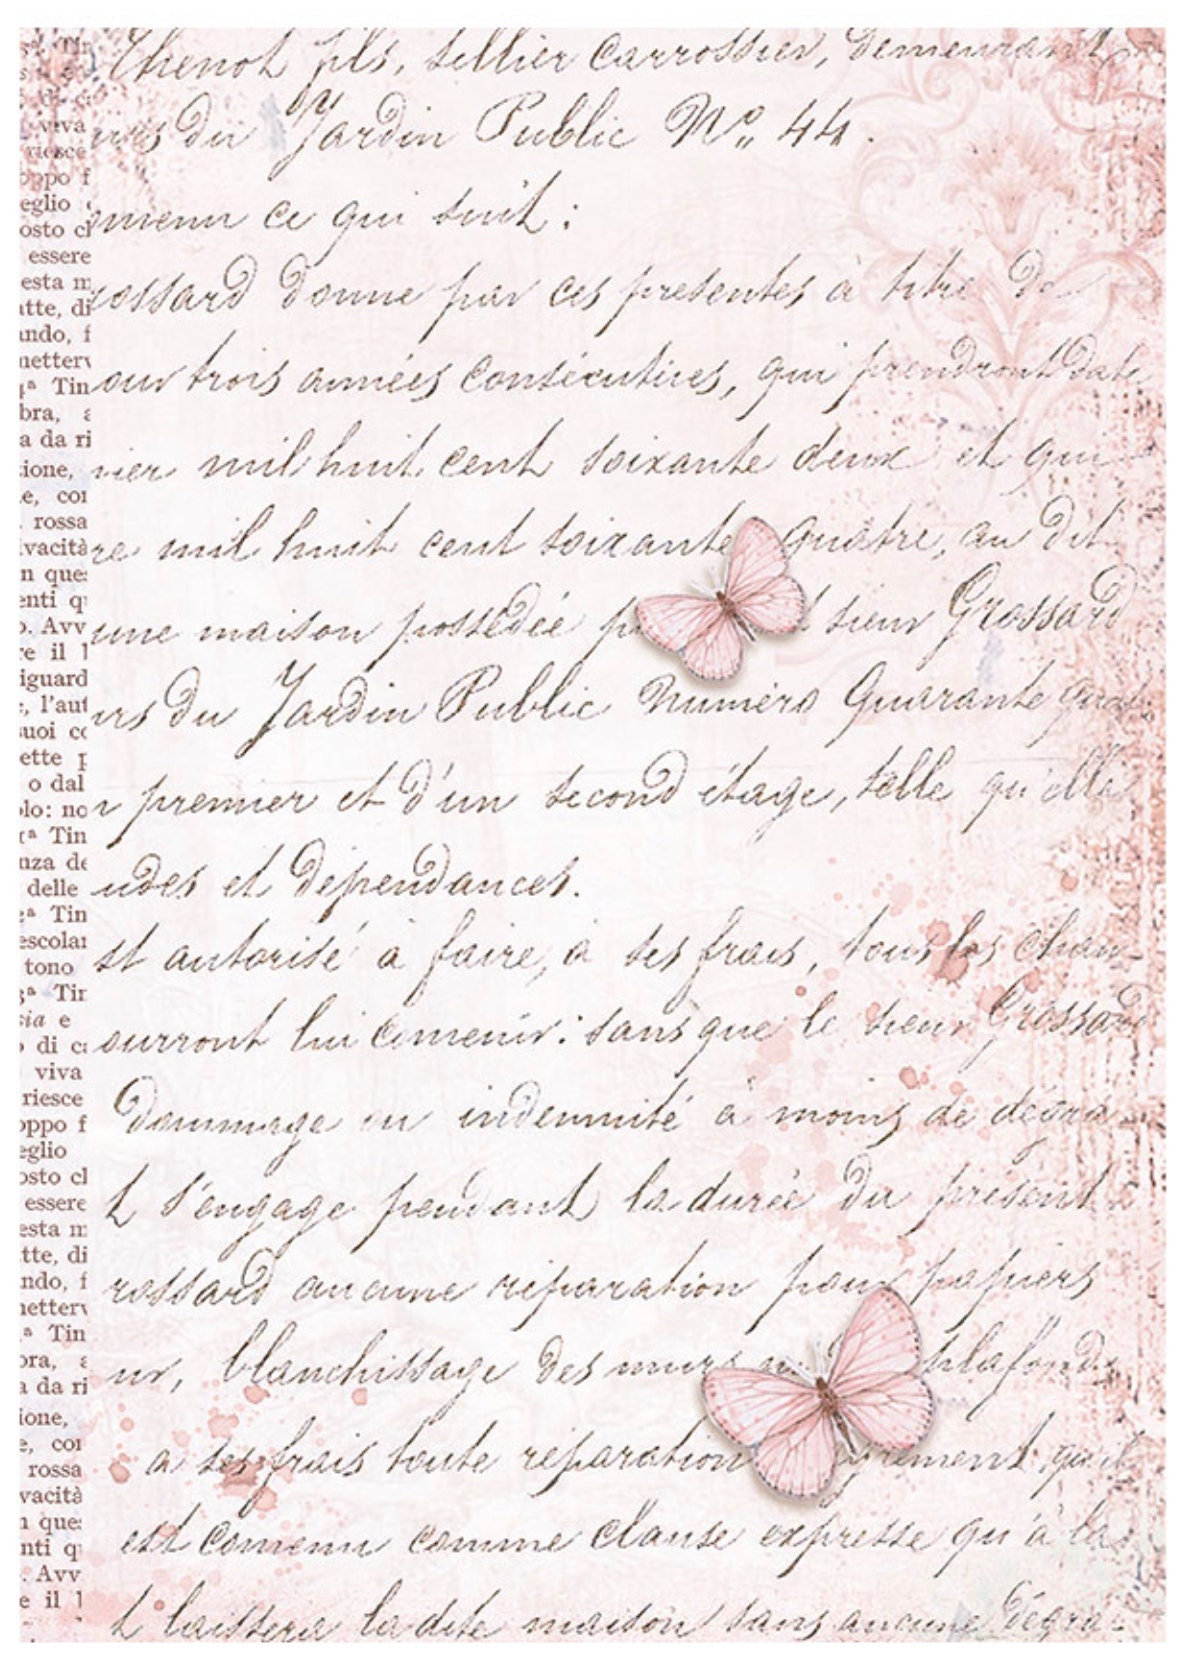 Thenot fils, sellier Carrossier, demeurant
du Jardin Public No. 44.
ce qui suit:
ossard donne par ces presentes à titre De
our trois années consécutives, qui prendront date
vier mil huit cent soixante deux et qui
re mil huit cent soixante quatre, au dit
une maison possédée sieur Grossard
urs du Jardin Public Numéro Quarante
premier et d'un second étage, telle qu'elle
udes et dépendances.
st autorisé à faire, à ses frais, tous les chan-
ourront lui convenir: sans que le sieur Grossard
Dommage ou indemnité à moins de dégra
t s'engage pendant la durée du présent
rossard aucune réparation pour papiers
ur, blanchissage des murs plafonds
a ses frais toute réparation qu'il
est convenu comme clause expresse qu'à la
t laissera la dite maison sans aucune dégra-
viva
riesce
oppo f
eglio
osto cl
essere
esta m
atte, di
ando, f
metterv
Tin
bra, a
a da ri
ione,
e, cor
rossa
vacità
n ques
enti q
. Avv
re il l
iguard
, l'aut
suoi co
ette p
o dal
lo: no
Tin
nza de
delle
Tin
escolar
tono
Tin
sia e
di ca
viva
riesce
oppo f
eglio
osto cl
essere
esta m
tte, di
ndo, f
netterv
Tin
ora, a
a da ri
ione,
e, cor
rossa
vacità
ques
nti q
. Avv
e il l